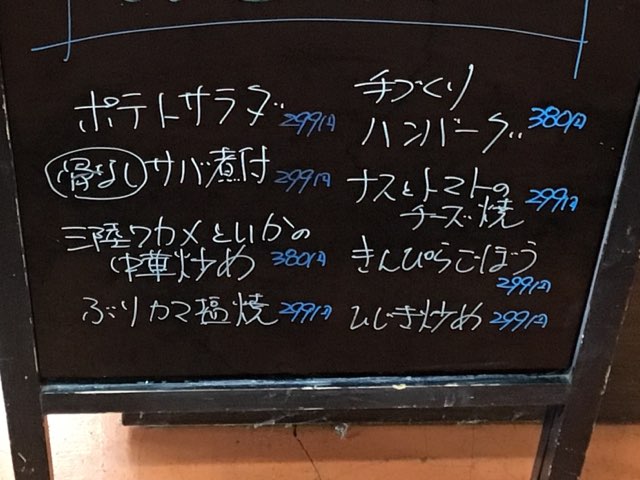 ポテトサラダ 299円
骨なし サバ煮付 299円
三陸ワカメといかの
中華炒め 380円
ぶりカマ塩焼 299円
手づくり
ハンバーグ 380円
ナスとトマトの
チーズ焼 299円
きんぴらごぼう
299円
ひじき炒め 299円